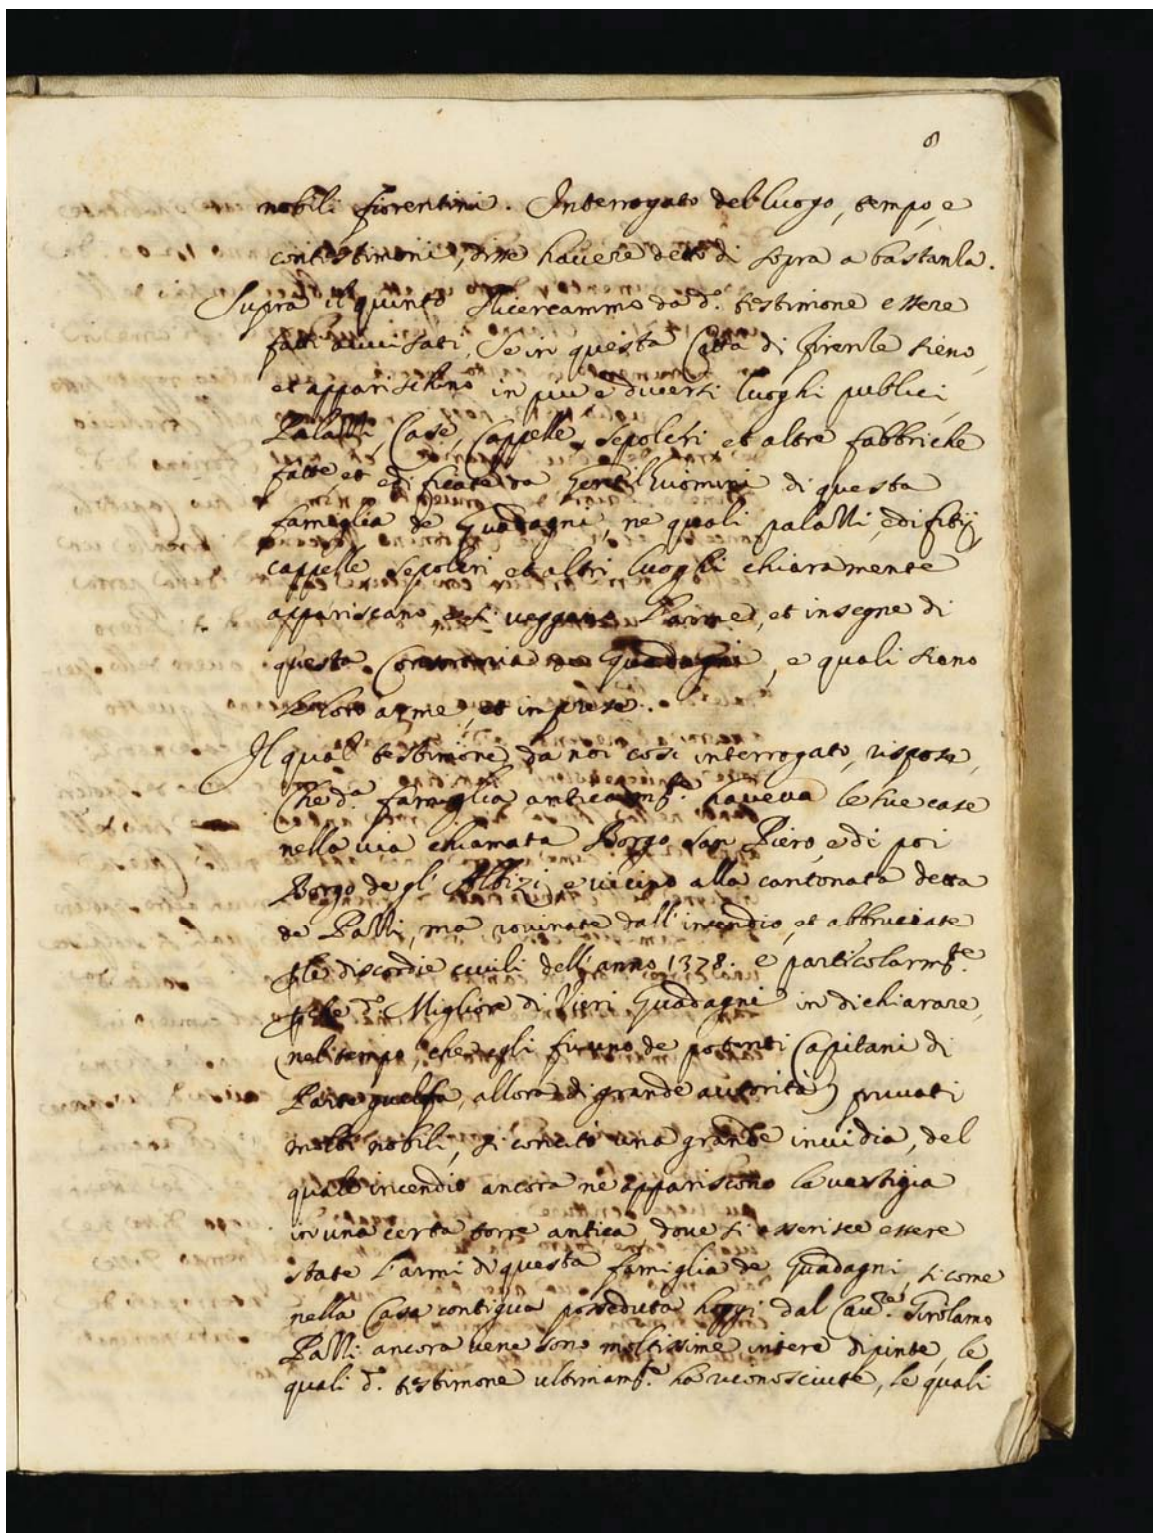 8
nobili fiorentini. Interrogato del luogo, tempo, e
contestimoni, disse havere detto di sopra a bastanza.
Supra il quinto Ricercammo da d.º testimone essere
fatti avvisati, Se in questa Città di firenze sieno,
et apparischino in più e diversi luoghi publici
Palazzi, Case, Cappelle, sepolchri et altre fabbriche
fatte, et edificate da Gentilhuomini di questa
famiglia de Guadagni, ne quali palazzi, edifitij,
cappelle sepolcri et altri luoghi chiaramente
appariscano, et si veggano l'arme, et insegne di
questa de Guadagni, e quali siano
le loro arme, et imprese.
Il qual testimone da noi così interrogato, rispose,
Che d.ª famiglia anticam.te haveva le sue case
nella via chiamata Borgo san Piero, e di poi
Borgo de gl'Albizi, e vicino alla cantonata detta
de Pazzi, ma rovinate dall'incendio, et abbruciate
p le discordie civili dell'anno 1378. e particolarm.te
p che d.º Migliore di Vieri Guadagni in dichiarare,
(nel tempo, che egli fu uno de potenti Capitani di
Parte guelfa, allora di grande autorità) privati
molti nobili, si concitò una grande invidia, del
quale incendio ancora ne appariscono le vestigia
in una certa torre antica, dove si asserisce essere
state l'armi di questa famiglia de Guadagni, si come
nella Casa contigua posseduta hoggi dal Cav.re Girolamo
Pazzi ancora vene sono moltissime intere dipinte, le
quali d.º testimone ultimam.te ha riconosciute, le quali